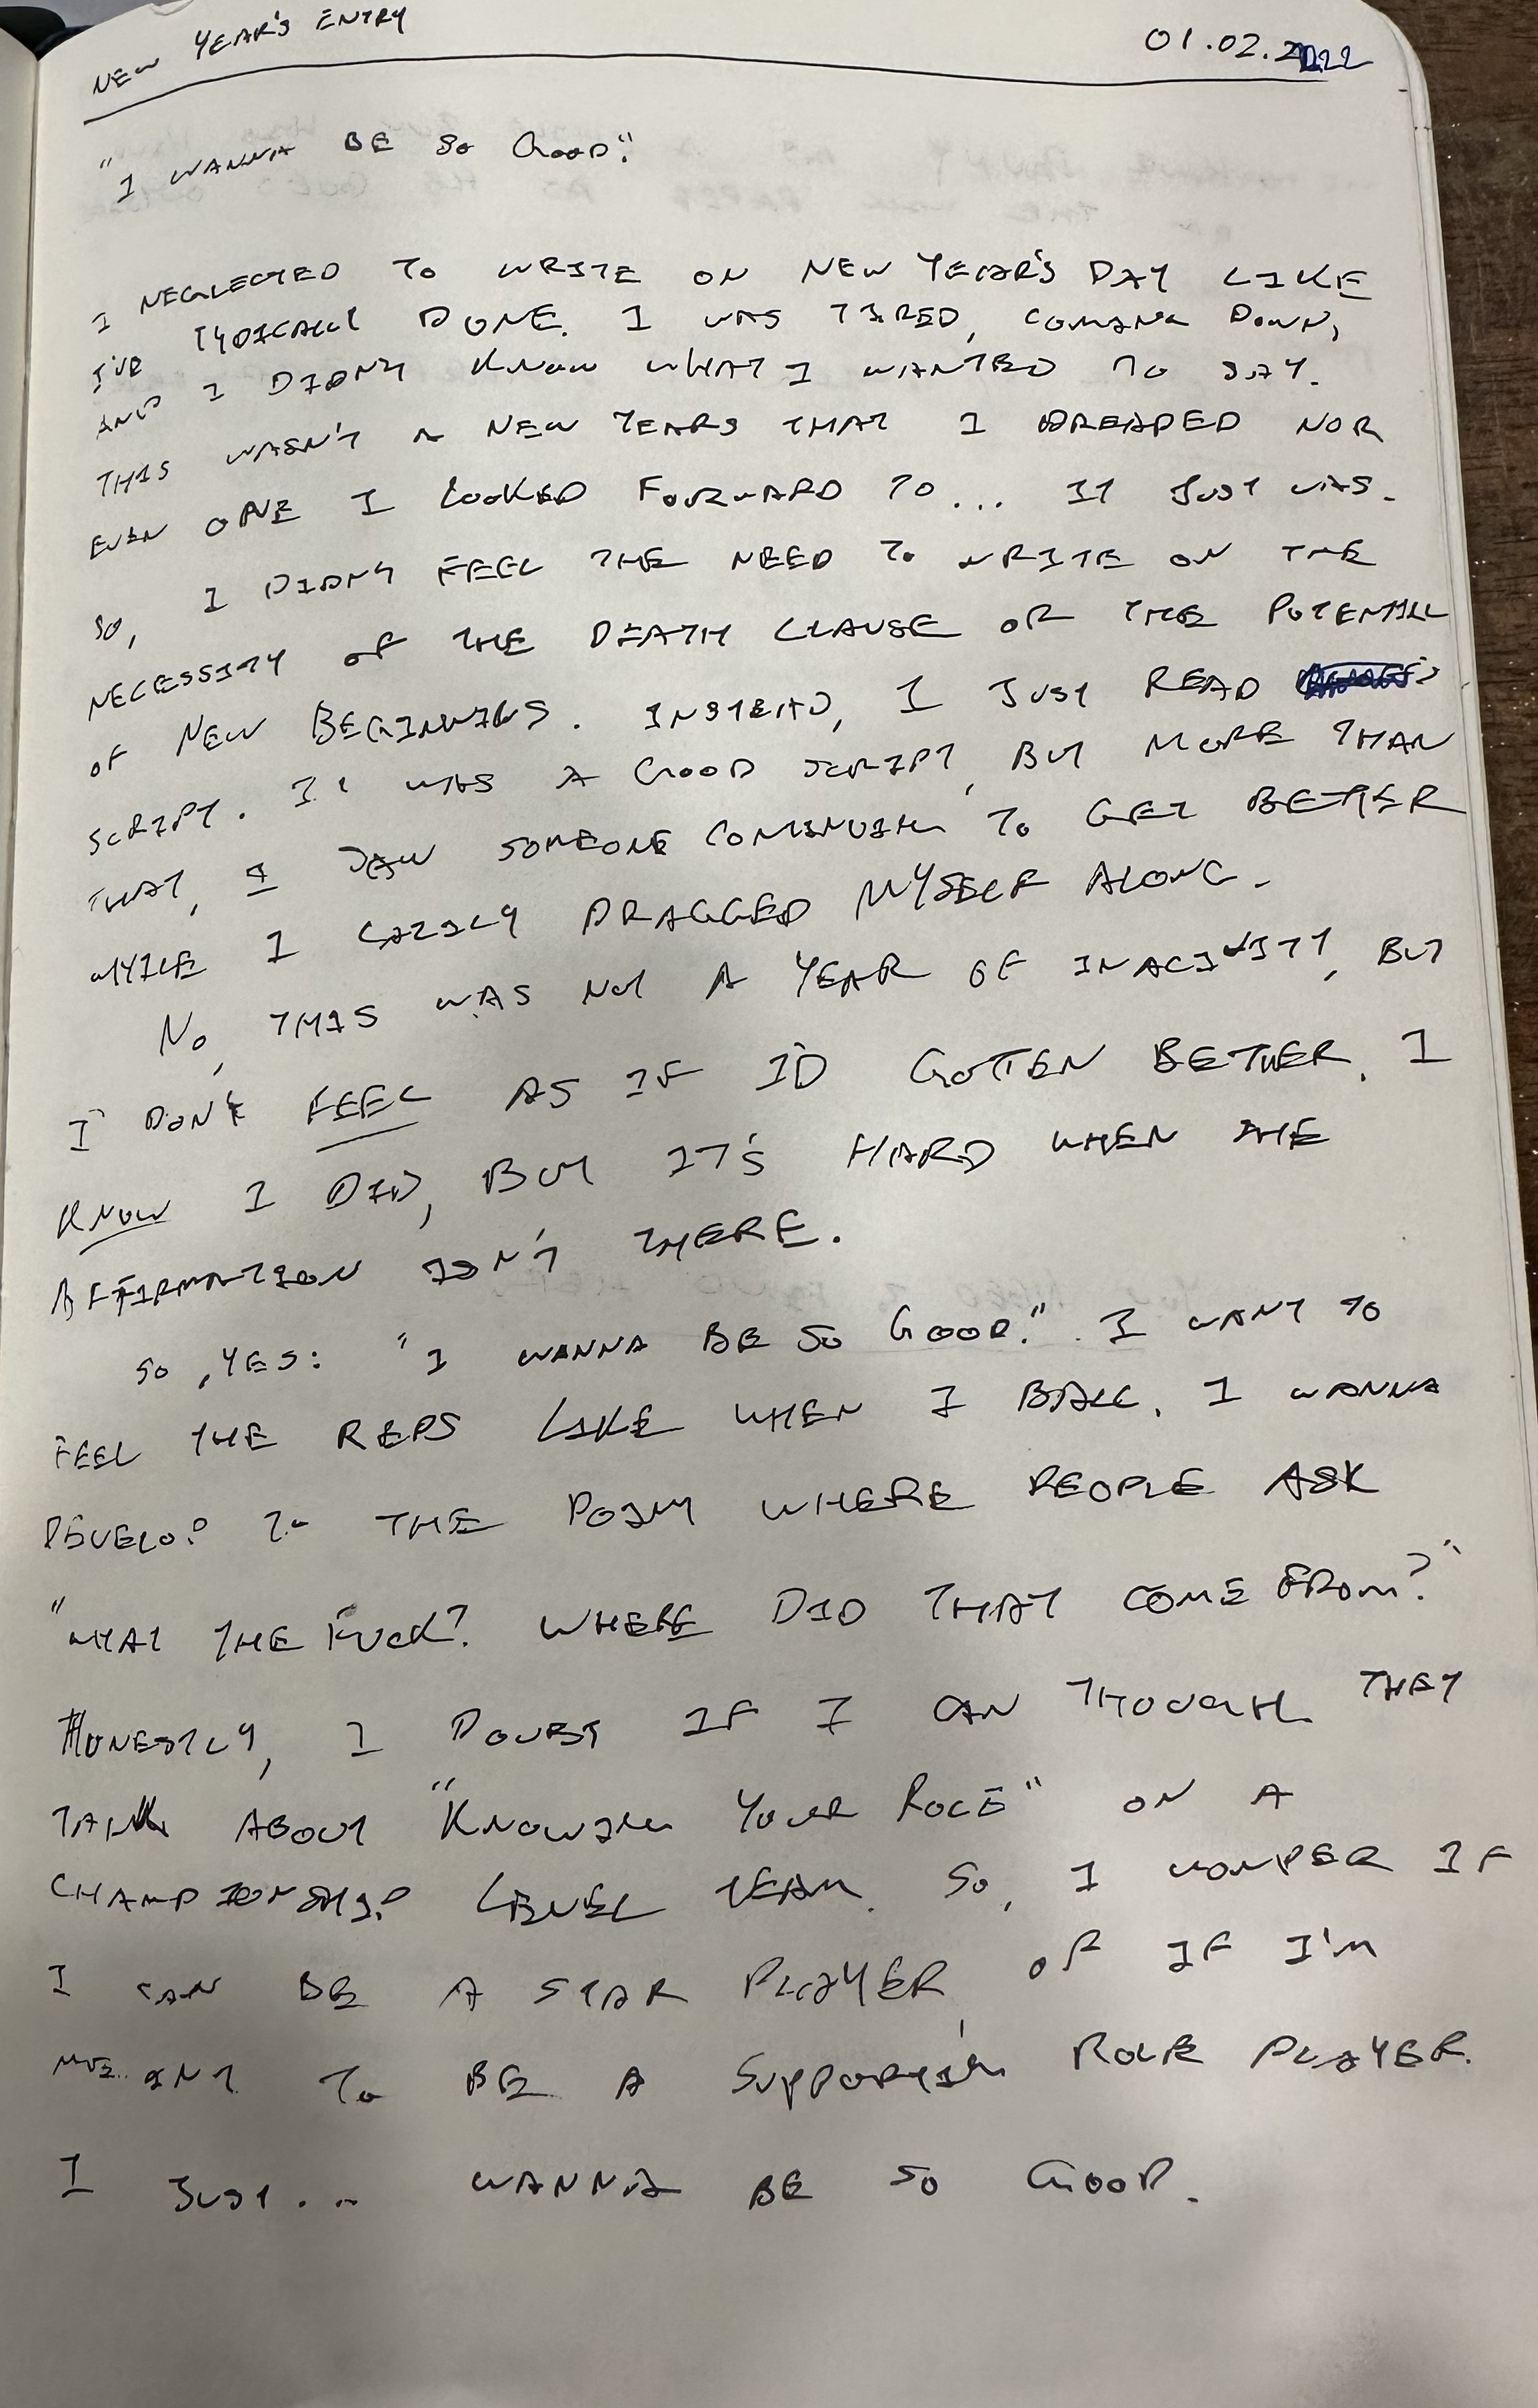 NEW YEAR'S ENTRY 01.02.2022
"I WANNA BE SO GOOD."
I NEGLECTED TO WRITE ON NEW YEAR'S DAY LIKE
I'VE TYPICALLY DONE. I WAS TIRED, COMING DOWN,
AND I DIDN'T KNOW WHAT I WANTED TO SAY.
THIS WASN'T A NEW YEARS THAT I DREADED NOR
EVEN ONE I LOOKED FORWARD TO... IT JUST WAS.
SO, I DIDN'T FEEL THE NEED TO WRITE ON THE
NECESSITY OF THE DEATH CLAUSE OR THE POTENTIAL
OF NEW BEGINNINGS. INSTEAD, I JUST READ
SCRIPT. IT WAS A GOOD SCRIPT, BUT MORE THAN
THAT, I SAW SOMEONE CONTINUING TO GET BETTER
WHILE I LAZILY DRAGGED MYSELF ALONG.
NO, THIS WAS NOT A YEAR OF INACTIVITY, BUT
I DON'T FEEL AS IF I'D GOTTEN BETTER. I
KNOW I DID, BUT IT'S HARD WHEN THE
AFFIRMATION ISN'T THERE.
SO, YES: "I WANNA BE SO GOOD." I WANT TO
FEEL THE REPS LIKE WHEN I BALL. I WANNA
DEVELOP TO THE POINT WHERE PEOPLE ASK
"WHAT THE FUCK? WHERE DID THAT COME FROM?"
HONESTLY, I DOUBT IF I CAN THOUGH. THEY
TALK ABOUT "KNOWING YOUR ROLE" ON A
CHAMPIONSHIP LEVEL TEAM. SO, I WONDER IF
I CAN BE A STAR PLAYER, OR IF I'M
MEANT TO BE A SUPPORTING ROLE PLAYER.
I JUST... WANNA BE SO GOOD.